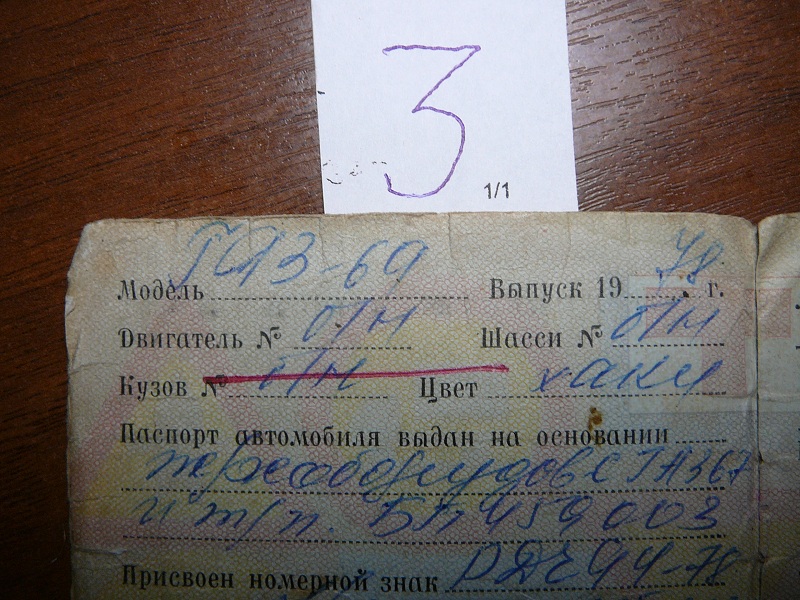 3
1/1
Модель ГАЗ-69 Выпуск 1978 г.
Двигатель № б/н Шасси № б/н
Кузов № б/н Цвет хаки
Паспорт автомобиля выдан на основании
переоборудов с ГАЗ67
и т/п. БП 459003
Присвоен номерной знак 94-78